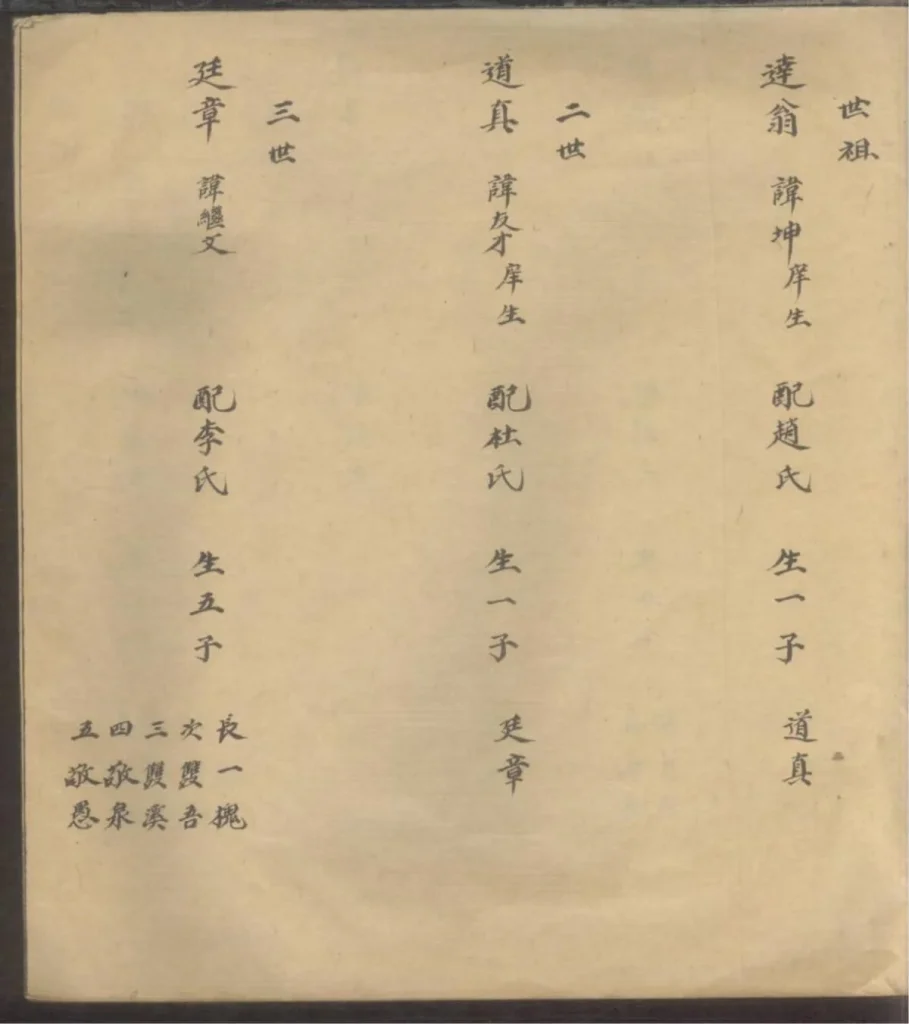 世祖
達翁 諱坤庠生 配趙氏 生一子 道真
二世
道真 諱友才庠生 配杜氏 生一子 廷章
三世
廷章 諱繼文 配李氏 生五子
長一槐
次雙吾
三雙溪
四敬泉
五敬愚